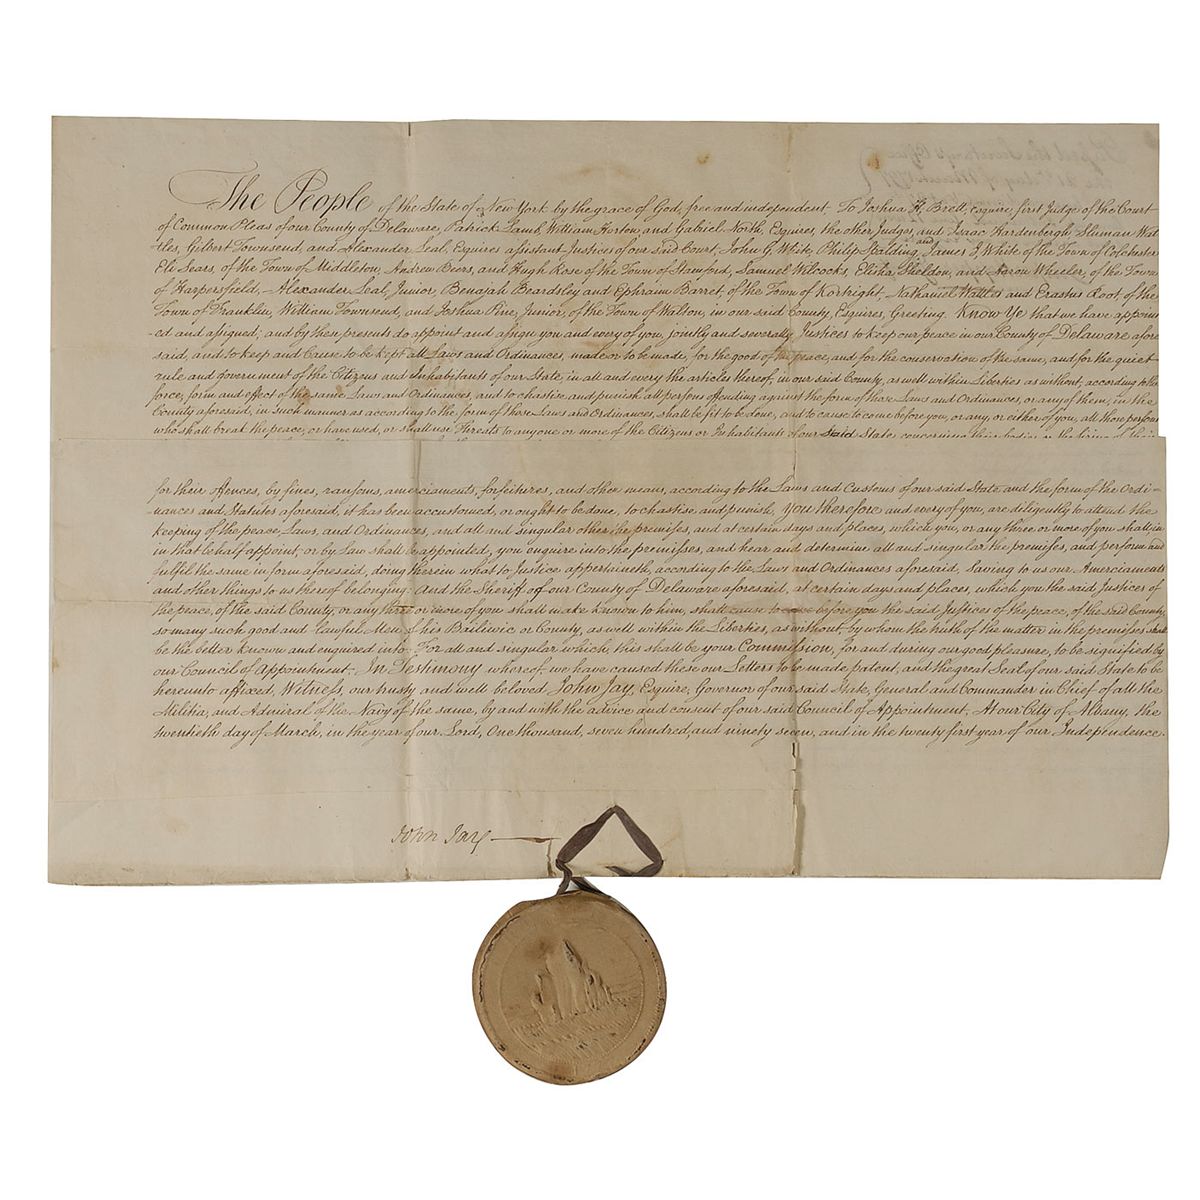 The People of the State of New York by the grace of God, free and independent To Joshua H. Brett, Esquire, first Judge of the Court
of Common Pleas of our County of Delaware, Patrick Lamb, William Horton, and Gabriel North, Esquires, the other Judges, and Isaac Hardenbergh Sluman Wat
-tles, Gilbert Townsend, and Alexander Leal, Esquires assistant Justices of our said Court, John G. White, Philip Spalding, and James I. White of the Town of Colchester
Eli Sears, of the Town of Middleton, Andrew Beers, and Hugh Rose of the Town of Stamford, Samuel Wilcocks, Elisha Sheldon, and Aaron Wheeler, of the Town
of Harpersfield, Alexander Leal, Junior, Benajah Beardsley and Ephraim Barret, of the Town of Kortright, Nathaniel Wattles and Erastus Root, of the
Town of Franklin, William Townsend, and Joshua Pine, Junior, of the Town of Walton, in our said County, Esquires, Greeting. Know Ye that we have appoint
-ed and assigned, and by these presents do appoint and assign you and every of you, jointly and severally Justices to keep our peace in our County of Delaware afore
said, and to keep and Cause to be kept all Laws and Ordinances, made or to be made, for the good of the peace, and for the conservation of the same, and for the quiet
rule and government of the Citizens and Inhabitants of our State, in all and every the articles thereof, in our said County, as well within Liberties as without, according to the
force, form and effect of the same Laws and Ordinances, and to chastise and punish all persons offending against the form of those Laws and Ordinances, or any of them, in the
County aforesaid, in such manner as according to the form of those Laws and Ordinances, shall be fit to be done, and to cause to come before you, or any, or either of you, all those persons
who shall break the peace, or have used, or shall use Threats to any one or more of the Citizens or Inhabitants of our said State concerning their bodies or the firing of their
for their offences, by fines, ransoms, amerciaments, forfeitures, and other means, according to the Laws and Customs of our said State, and the form of the Ordi-
-nances and Statutes aforesaid, it has been accustomed, or ought to be done, to chastise and punish, You therefore and every of you, are diligently to attend the
keeping of the peace, Laws, and Ordinances, and all and singular other the premises, and at certain days and places, which you, or any three or more of you shall, in
in that behalf appoint, or by Law shall be appointed, you enquire into the premisses, and hear and determine all and singular the premises, and perform and
fulfil the same in form aforesaid, doing therein what to Justice appertaineth, according to the Laws and Ordinances aforesaid, Saving to us our Amerciaments
and other things to us thereof belonging. And the Sheriff of our County of Delaware aforesaid, at certain days and places, which you the said Justices of
the peace, of the said County, or any three or more of you shall make known to him, shall cause to come before you the said Justices of the peace, of the said County
so many such good and lawful Men, of his Bailiwic or County, as well within the Liberties, as without, by whom the truth of the matter in the premisses shall
be the better known and enquired into. For all and singular which, this shall be your Commission, for and during our good pleasure, to be signified by
our Council of Appointment, In Testimony whereof, we have caused these our Letters to be made patent, and the great Seal of our said State to be
hereunto affixed, Witness, our trusty and well beloved John Jay, Esquire, Governor of our said State, General and Commander in Chief of all the
Militia, and Admiral of the Navy of the same, by and with the advice and consent of our said Council of Appointment, At our City of Albany, the
twentieth day of March, in the year of our Lord, One thousand, seven hundred, and ninety seven, and in the twenty first year of our Independence.
John Jay